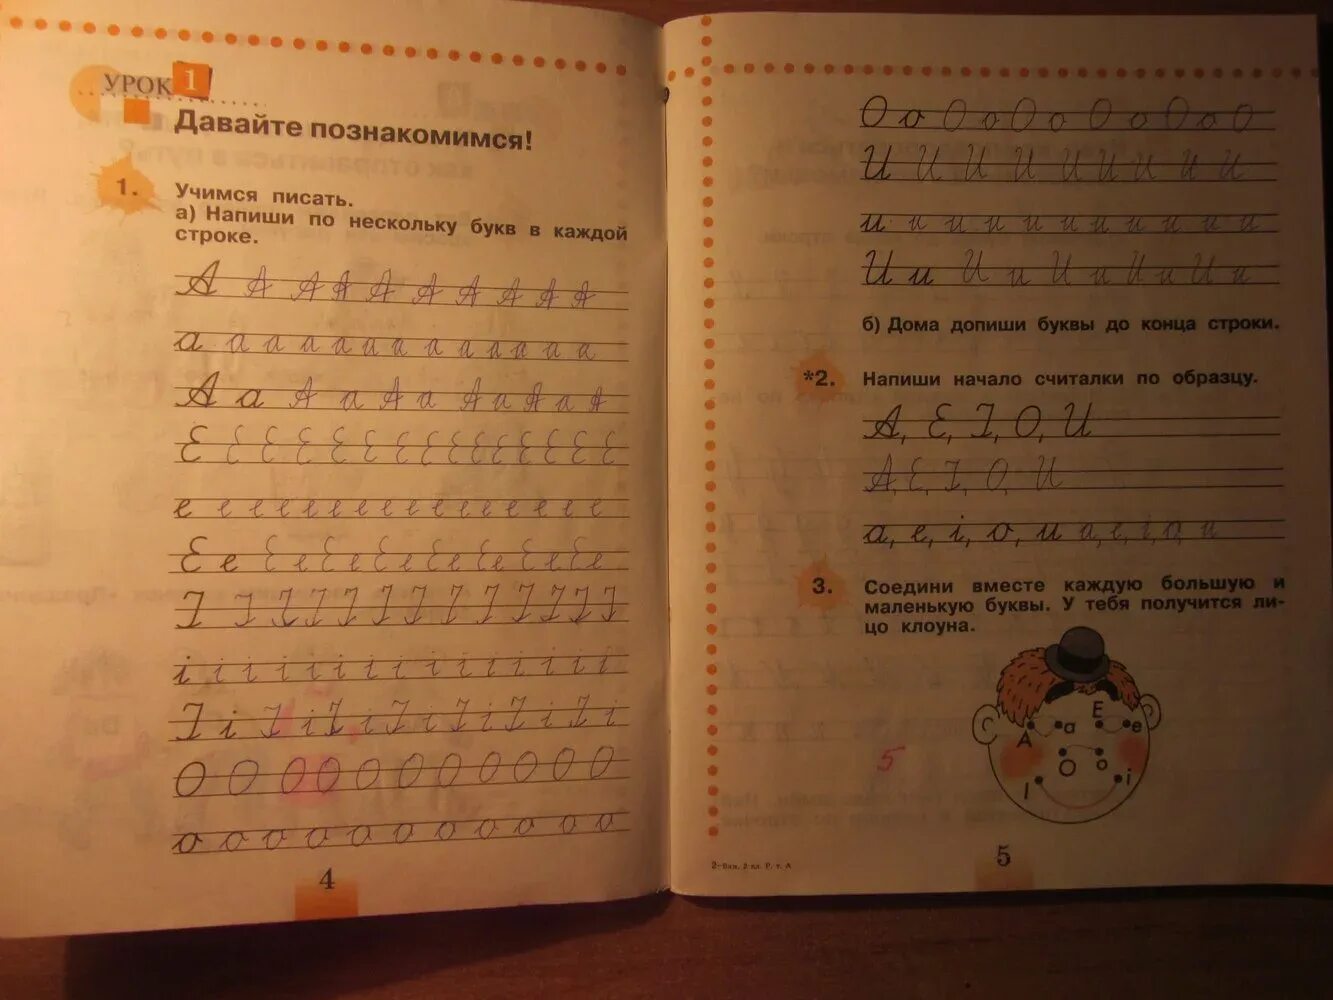 УРОК 1
Давайте познакомимся!
1. Учимся писать.
а) Напиши по нескольку букв в каждой
строке.
A A A A A A A A A A
a a a a a a a a a a a a a
A a A a A a A a A a A
E E E E E E E E E E E E E E
e e e e e e e e e e e e e e e e
E e E e E e E e E e E e E e
I I I I I I I I I I I I I
i i i i i i i i i i i i i i i
I i I i I i I i I i I i
O O O O O O O O O O O
o o o o o o o o o o o
4
O o O o O o O o O o O
U U U U U U U U U
u u u u u u u u u u u u u u
U u U u U u U u U u
б) Дома допиши буквы до конца строки.
*2. Напиши начало считалки по образцу.
A, E, I, O, U
A, E, I, O, U
a, e, i, o, u a, e, i, o, u
3. Соедини вместе каждую большую и
маленькую буквы. У тебя получится ли-
цо клоуна.
A a E e
O o
I i
5
5